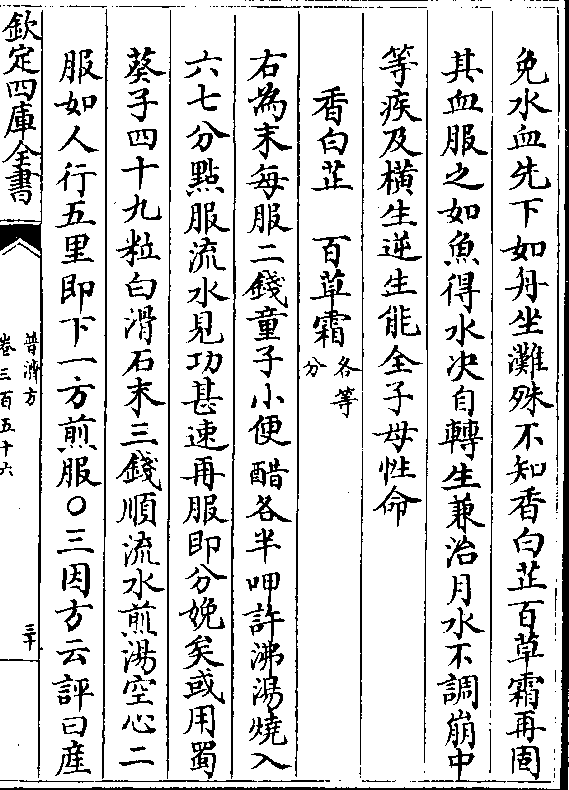 免水血先下如舟坐灘殊不知香白芷百草霜再固
其血服之如魚得水決自轉生兼治月水不調崩中
等疾及橫生逆生能全子母性命
香白芷　百草霜各等分
右為末每服二錢童子小便醋各半呷許沸湯燒入
六七分㸃服流水見功甚速再服即分娩矣或用蜀
葵子四十九粒白滑石末三錢順流水煎湯空心二
服如人行五里即下一方煎服〇三因方云評曰産
欽定四庫全書
普濟方
卷三百五十六
三十